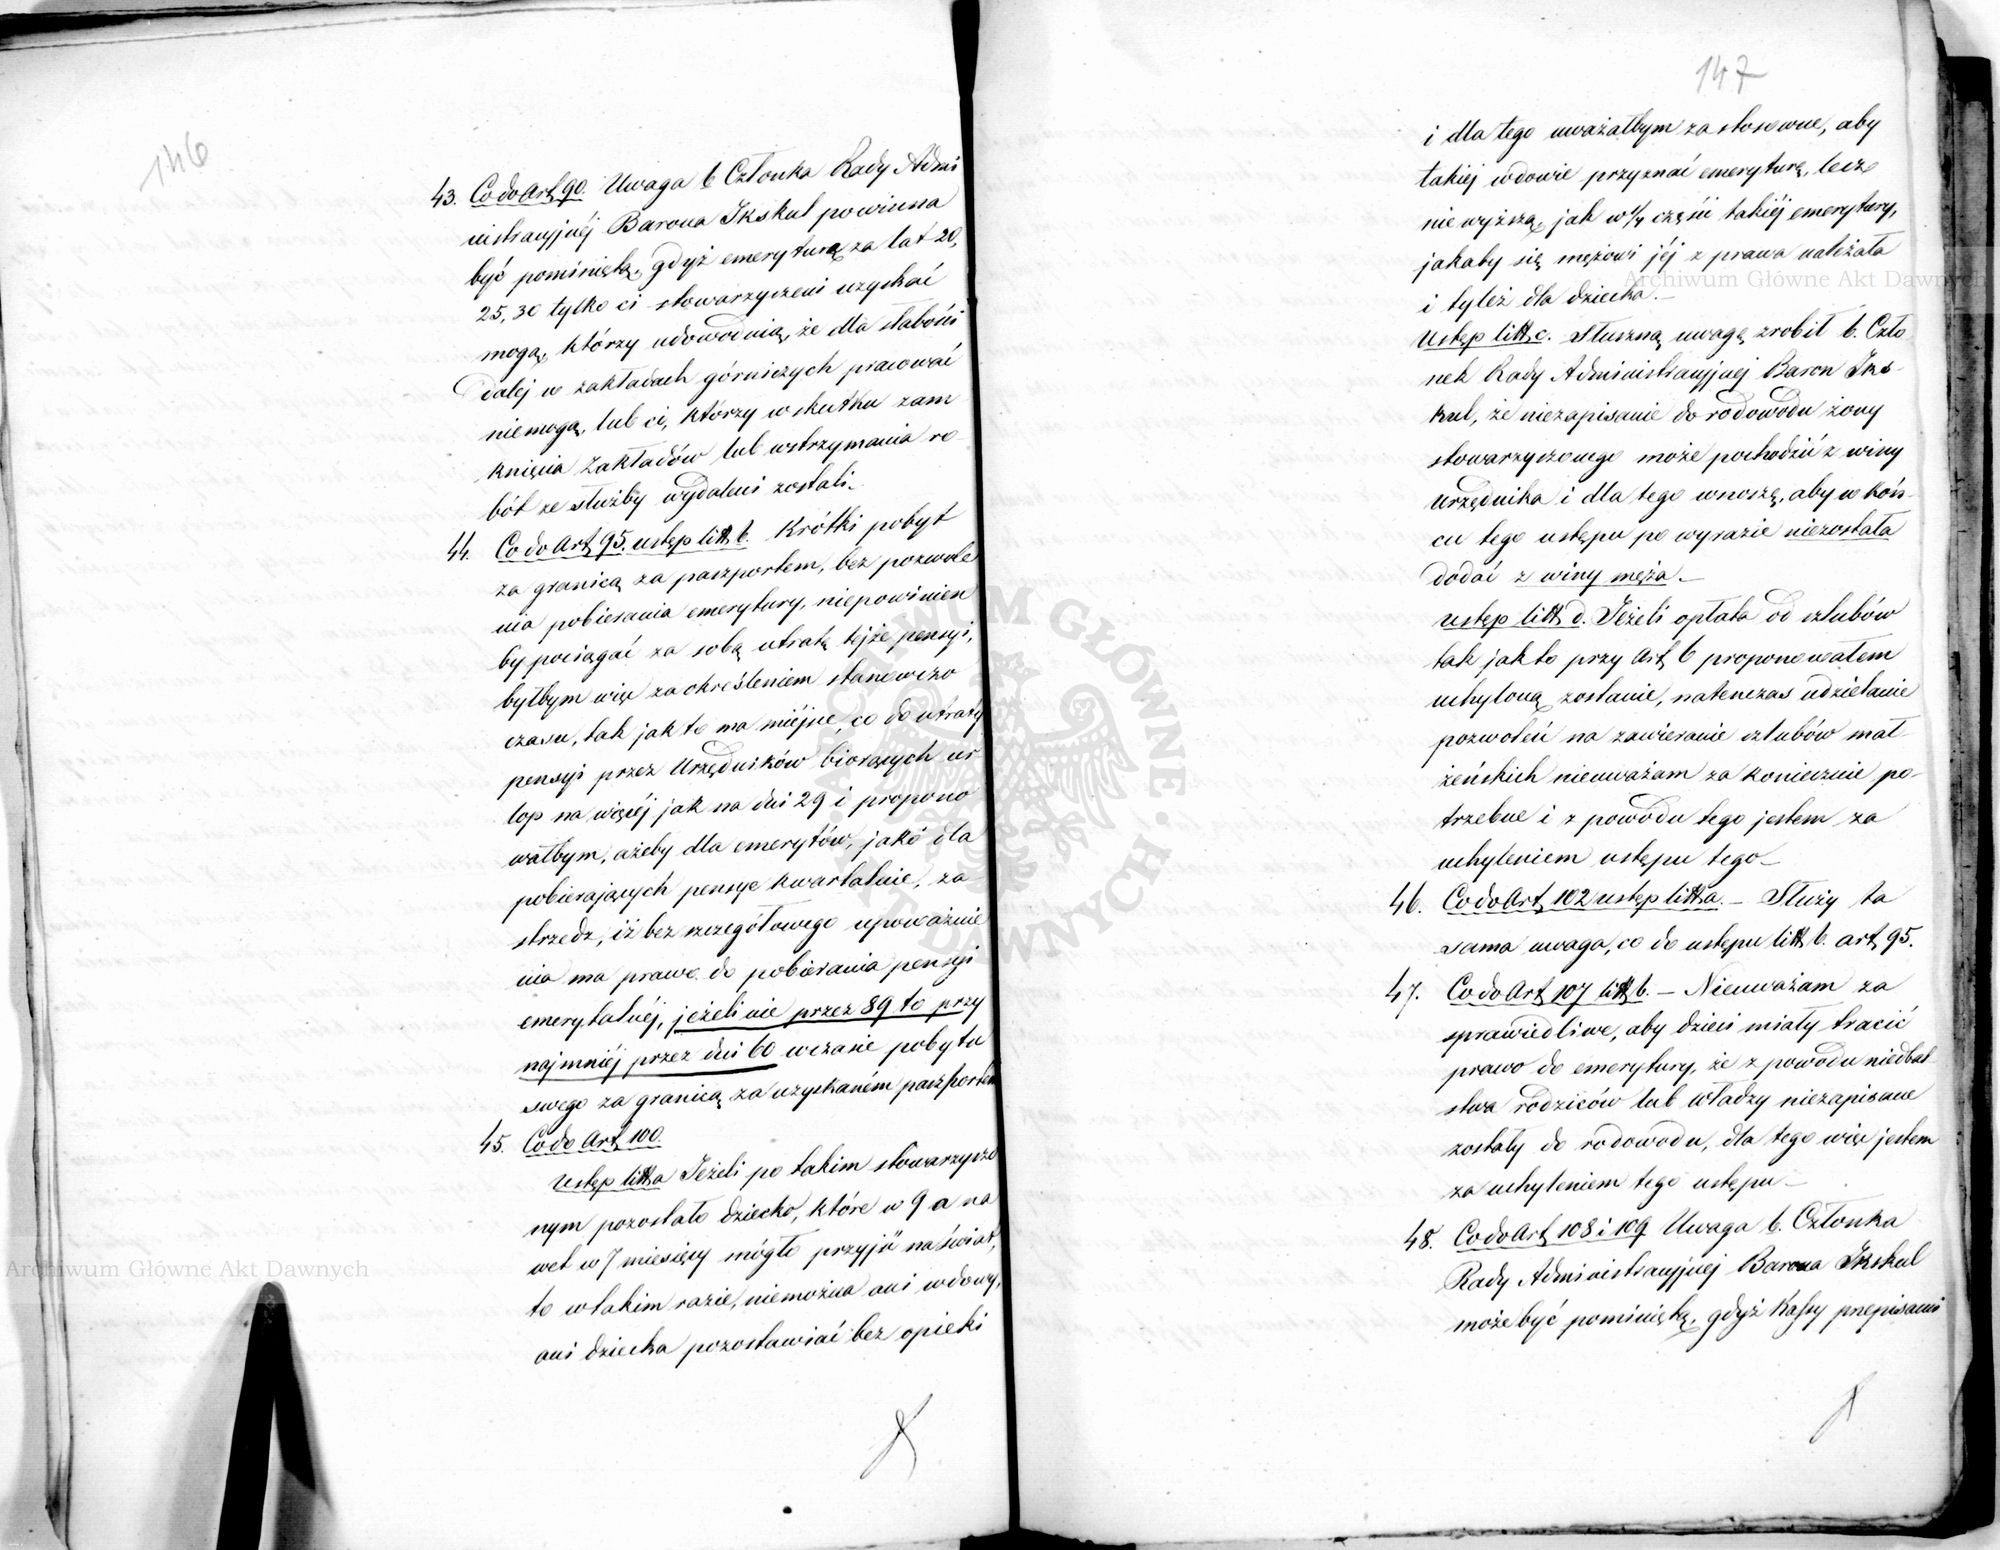 146
43. Co do Art. 90. Uwaga b. Członka Rady Admi
nistracyjnéj Barona Ikskul powinna
być pominiętą, gdyż emeryturę za lat 20,
25, 30 tylko ci stowarzyszeni uzyskać
mogą, którzy udowodnią, że dla słabości
dalej w zakładach górniczych pracować
niemogą, lub ci, którzy w skutku zam
knięcia Zakładów lub wstrzymania ro
bót ze służby wydaleni zostali._
44. Co do Art. 95. ustęp litt. b. Krótki pobyt
za granicą za paszportem, bez pozwole
nia pobierania emerytury, niepowinien
by pociągać za sobą utratę tejże pensyi,
byłbym więc za określeniem stanowczo
czasu, tak jak to ma miéjsce, co do utraty
pensyi przez Urzędników biorących ur
lop na więcéj jak na dni 29 i propono
wałbym, ażeby dla emerytów, jako dla
pobierających pensye kwartalnie, za
strzedz, iż bez szczegółowego upoważnie
nia ma prawo do pobierania pensyi
emerytalnéj, jeżeli nie przez 89 to przy
najmniéj przez dni 60 w czasie pobytu
swego za granicą za uzyskaném paszportem
45. Co do Art. 100.
Ustęp litt. a Jeżeli po takim stowarzyszo
nym pozostało dziecko, które w 9 a na
wet w 7 miesięcy mógło przyjść na świat,
to w takim razie, niemożna ani wdowy,
ani dziecka pozostawiać bez opieki
147
i dla tego uważałbym za stosowne, aby
takiéj wdowie przyznać emeryturę, lecz
nie wyższą, jak w 1/4 części takiéj emerytury,
jakaby się mężowi jéj z prawa należała
i tyleż dla dziecka._
Ustęp litt. c. Słuszną uwagę zrobił b. Czło
nek Rady Administracyjnej Baron Iks-
kul, że niezapisanie do rodowodu żony
stowarzyszonego może pochodzić z winy
urzędnika i dla tego wnoszę, aby w koń-
cu tego ustępu po wyrazie niezostała
dodać z winy męża._
Ustęp litt. d. Jeżeli opłata od szlubów
tak jak to przy Art. 6 proponowałem
uchyloną zostanie, natenczas udzielanie
pozwoleń na zawieranie szlubów mał-
żeńskich nieuważam za koniecznie po-
trzebne i z powodu tego jestem za
uchyleniem ustępu tego_
46. Co do Art. 102 ustęp litt. a._ Służy ta
sama uwaga, co do ustępu litt. b. art. 95.
47. Co do Art. 107 litt. b. – Nieuważam za
sprawiedliwe, aby dzieci miały tracić
prawo do emerytury, że z powodu niedbal
stwa rodziców lub władzy niezapisane
zostały do rodowodu, dla tego więc jestem
za uchyleniem tego ustępu_
48. Co do Art. 108 i 109 Uwaga b. Członka
Rady Administracyjnej Barona Ikskul
może być pominiętą, gdyż Kassy przepisami
Archiwum Główne Akt Dawnych
Archiwum Główne Akt Dawnych
ARCHIWUM GŁÓWNE AKT DAWNYCH